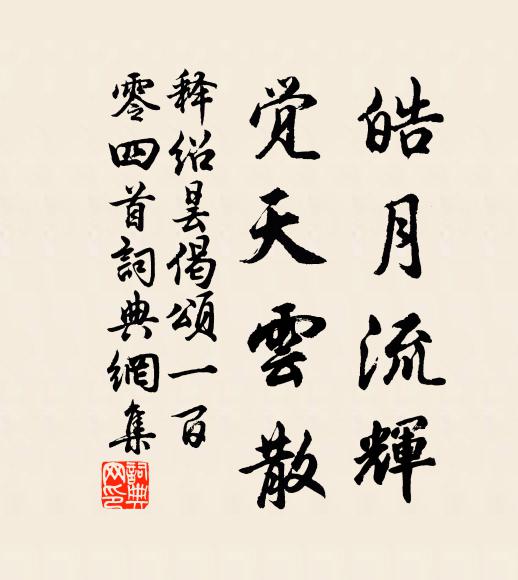 皓月流輝
覚天雲散
释绍昙偈颂一百
零四首詞典網集
詞典网印